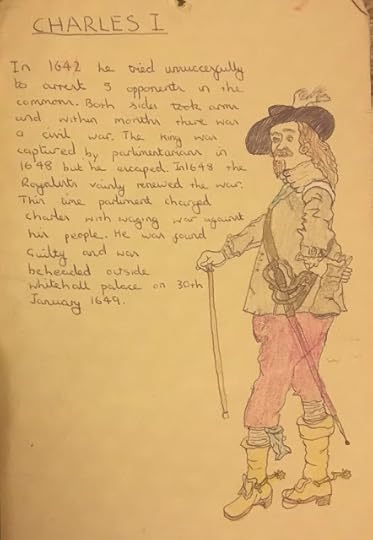 CHARLES I
In 1642 he tried unsuccesfully
to arrest 5 opponents in the
commons. Both sides took arms
and within months there was
a civil war. The king was
captured by parlimentarians in
1648 but he escaped. In 1648 the
Royalists vainly renewed the war.
This time parliment charged
charles with waging war against
his people. He was found
Guilty and was
beheaded outside
whitehall palace on 30th
January 1649.